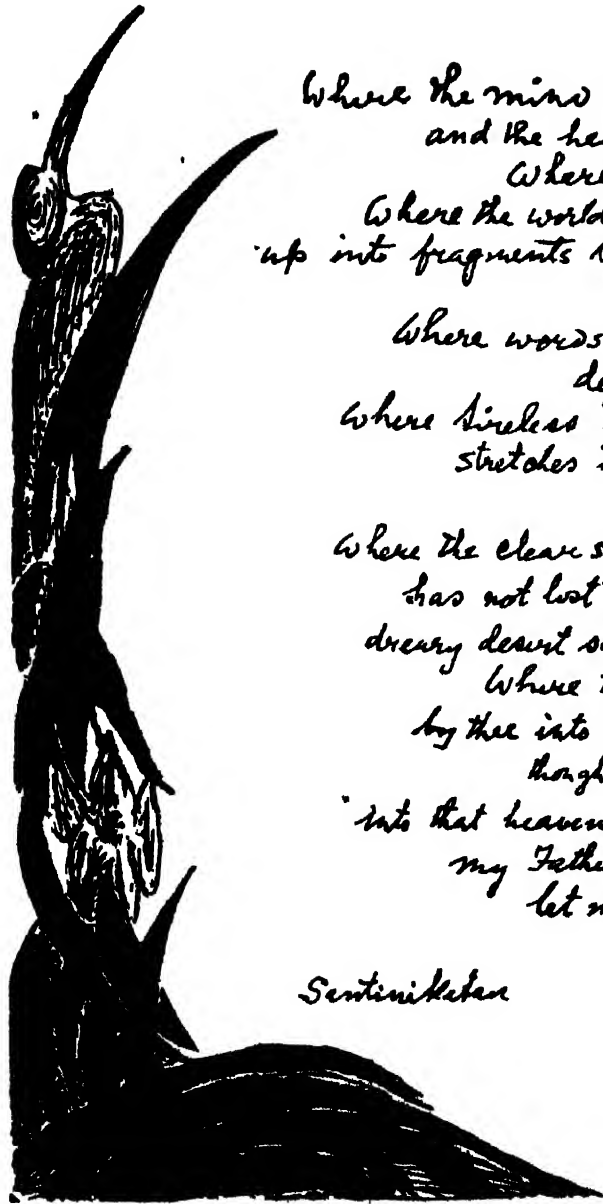 Where the mind
and the hea
Where
Where the world
up into fragments
Where words
de
Where tireless
stretches i
Where the clear s
has not lost
dreary desert sa
Where t
by thee into
though
into that heaven
my Fathe
let m
Santiniketan